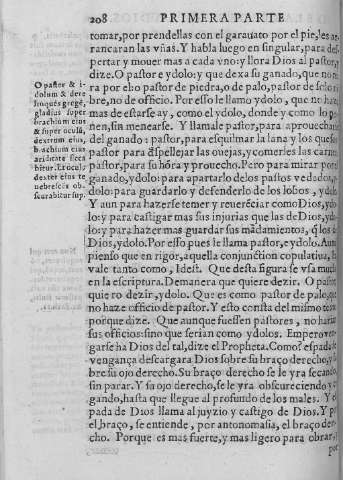 208 PRIMERA PARTE
tomar, por prendellas con el garauato por el pie, les ar
rancaran las vñas. Y habla luego en singular, para des
pertar y mouer mas a cada vno: y llora Dios al pastor, y
dize. O pastor e ydolo: y que dexa su ganado, que no
ra por eſſo pastor de piedra, o de palo, pastor de solo
bre, no de officio. Por esso le llamo ydolo, que no ha
mas de estarse ay, como el ydolo, donde y como lo po
nen, sin menearse. Y llamale pastor, para aprouecharse
del ganado: pastor, para esquilmar la lana y los ques
pastor para despellejar las ouejas, y comerles las carne
pastor, para su hora y prouecho. Pero para mirar por
ganado, ydolo: para apartarlo de los pastos vedados,
dolo: para guardarlo y defenderlo de los lobos, ydol
Y aun para hazerse temer y reuereciar como Dios, ydo
lo: y para castigar mas sus injurias que las de Dios, ydo
lo: y para hazer mas guardar sus mādamientos, q̄ los de
Dios, ydolo. Por esso pues le llama pastor, e ydolo. Aun
pienso que en rigor, aquella conjunction copulatiua,
vale tanto como, Idest. Que desta figura se vsa much
en la escriptura. De manera que quiere dezir. O pasto
quiero dezir, ydolo. Que es como pastor de palo, que
no haze officio de pastor. Y esto consta del mismo tex
porque dize. Que aunque fuessen pastores, no harian
sus officios: sino que serian como ydolos. Empero ven
garse ha Dios del tal, dize el Propheta. Como? espada
vengança descargara Dios sobre su braço derecho, y
bre su ojo derecho. Su braço derecho se le yra secando
sin parar. Y su ojo derecho, se le yra obscureciendo y c
gando, hasta que llegue al profundo de los males. Y es
pada de Dios llama al juyzio y castigo de Dios. Y p
el braço, se entiende, por antonomasia, el braço dere
cho. Porque es mas fuerte, y mas ligero para obrar,
por
O pastor & i-
dolum & dere
linquēs gregē,
gladius super
brachium eius
& super oculū
dextrum eius,
brachium eius
ariditate sicca
bitur. Et oculu
dexter eius te
nebrescēs ob-
scurabitur.sup.